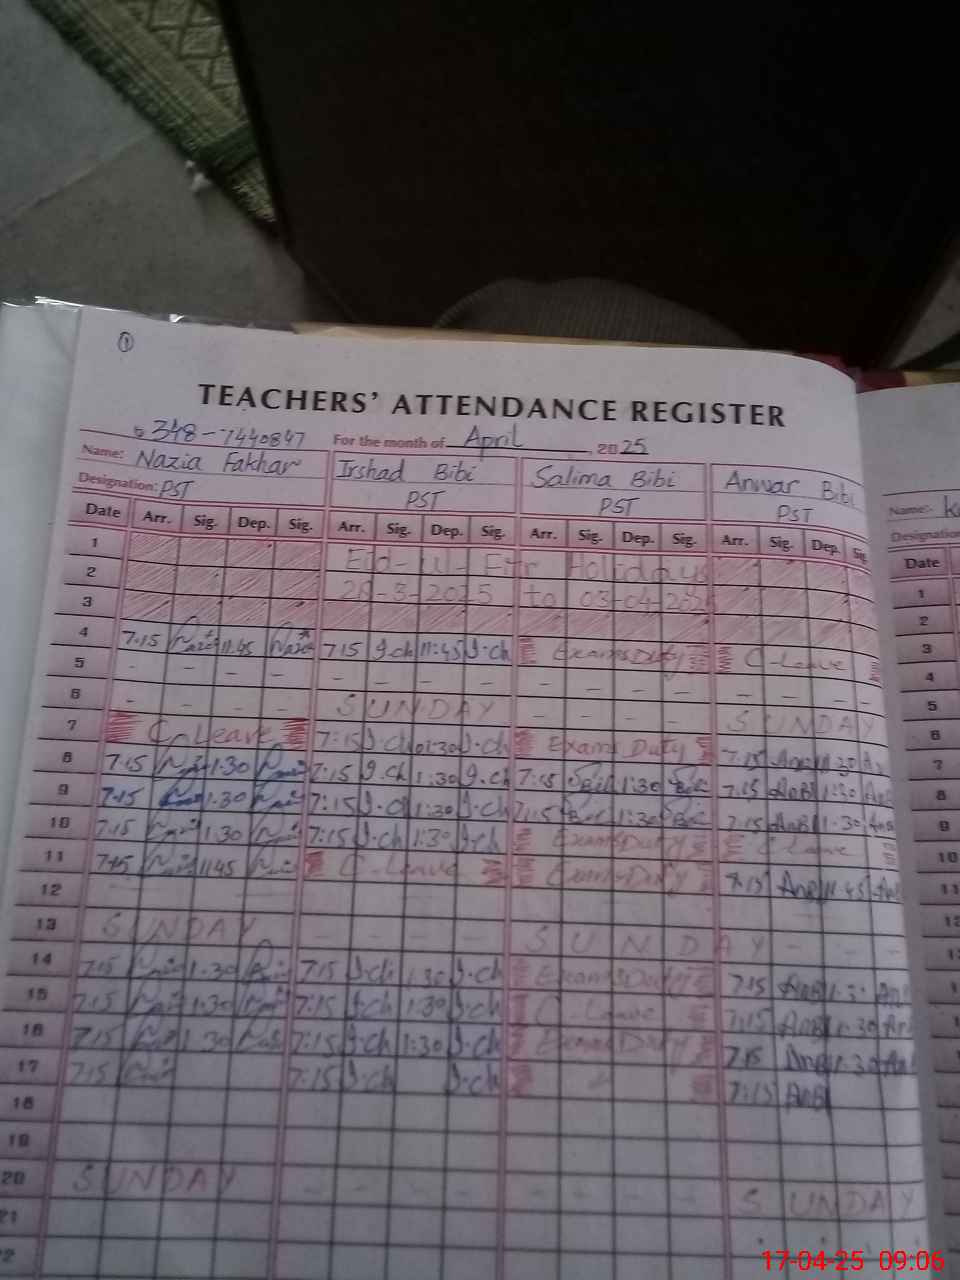 1
TEACHERS' ATTENDANCE REGISTER
348-7440847 For the month of April, 2025
Name: Nazia Fakhar Irshad Bibi Salima Bibi Anwar Bibi Name:-
Designation: PST PST PST PST Designation
Date Arr. Sig. Dep. Sig. Arr. Sig. Dep. Sig. Arr. Sig. Dep. Sig. Arr. Sig. Dep. Sig Date
1 Eid-ul-Fitr Holidays 1
2 28-3-2025 to 03-04-202 2
3 3
4 7.15 11.45 7.15 I.ch 11:45 I.ch Exams Duty C-Leave 4
5 - - - - - - - - - - - - 5
6 - - - - SUNDAY - - - - SUNDAY 6
7 C. Leave 7:15 I.ch 01:30 I.ch Exams Duty 7.15 AnB 1.30 7
8 7.15 1.30 7.15 I.ch 1:30 I.ch 7:15 1:30 7.15 AnB 1:30 AnB 8
9 7.15 1.30 7:15 I.ch 1:30 I.ch 7:15 1:30 7.15 AnB 1.30 9
10 7.15 1.30 7:15 I.ch 1:30 I.ch Exams Duty C-Leave 10
11 7.15 11.45 C-Leave Exams Duty 7.15 AnB 11.45 11
12 12
13 SUNDAY - - - - SUNDAY - -
14 7.15 1.30 7:15 I.ch 1:30 I.ch Exams Duty 7.15 AnB 1.3
15 7.15 1.30 7:15 I.ch 1:30 I.ch C-Leave 7.15 AnB 1.30
16 7.15 1.30 7:15 I.ch 1:30 I.ch Exams Duty 7.15 AnB 1.30
17 7.15 7:15 I.ch I.ch 7:15 AnB
18
19
20 SUNDAY - - - - - - - - SUNDAY
21
22
17-04-25 09:06